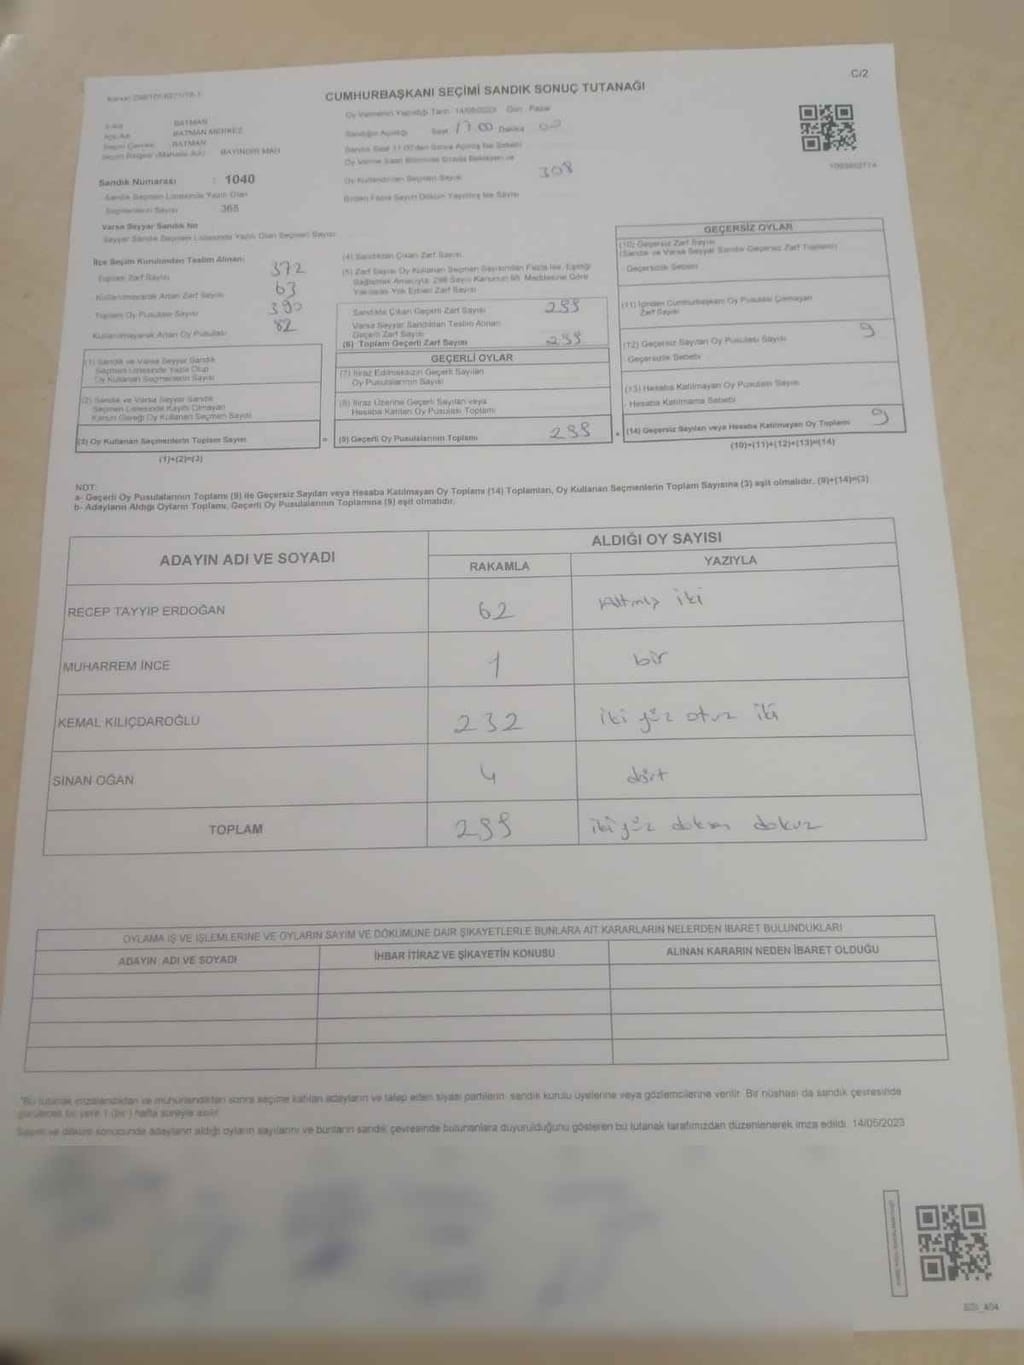 C/2
CUMHURBAŞKANI SEÇİMİ SANDIK SONUÇ TUTANAĞI
BATMAN
BATMAN MERKEZ
BATMAN
BAYINDIR MAH
Oy Vermenin Yapıldığı Tarih: 14/05/2023 Gün: Pazar
Sandığın Açıldığı Saat 17 00 Dakika 00
Oy Kullandırılan Seçmen Sayısı 308
Birden Fazla Sayım Döküm Yapılmış İse Sayısı
Sandık Numarası : 1040
Sandık Seçmen Listesinde Yazılı Olan
Seçmenlerin Sayısı 365
Varsa Seyyar Sandık No
Seyyar Sandık Seçmen Listesinde Yazılı Olan Seçmen Sayısı
İlçe Seçim Kurulundan Teslim Alınan:
Toplam Zarf Sayısı 372
Kullanılmayarak Artan Zarf Sayısı 63
Toplam Oy Pusulası Sayısı 390
Kullanılmayarak Artan Oy Pusulası 82
(1) Sandık ve Varsa Seyyar Sandık
Seçmen Listesinde Yazılı Olup
Oy Kullanan Seçmenlerin Sayısı
(2) Sandık ve Varsa Seyyar Sandık
Seçmen Listesinde Kayıtlı Olmayan
Kanun Gereği Oy Kullanan Seçmen Sayısı
(3) Oy Kullanan Seçmenlerin Toplam Sayısı
(1)+(2)=(3)
(4) Sandıktan Çıkan Zarf Sayısı
(5) Zarf Sayısı Oy Kullanan Seçmen Sayısından Fazla İse, Eşitliği
Sağlamak Amacıyla; 298 Sayılı Kanunun 98. Maddesine Göre
Yakılarak Yok Edilen Zarf Sayısı
Sandıkta Çıkan Geçerli Zarf Sayısı 299
Varsa Seyyar Sandıktan Teslim Alınan
Geçerli Zarf Sayısı
(6) Toplam Geçerli Zarf Sayısı 299
GEÇERLİ OYLAR
(7) İtiraz Edilmeksizin Geçerli Sayılan
Oy Pusulalarının Sayısı
(8) İtiraz Üzerine Geçerli Sayılan veya
Hesaba Katılan Oy Pusulası Toplamı
= (9) Geçerli Oy Pusulalarının Toplamı 299
GEÇERSİZ OYLAR
(10) Geçersiz Zarf Sayısı
(Sandık ve Varsa Seyyar Sandık Geçersiz Zarf Toplamı)
Geçersizlik Sebebi
(11) İçinden Cumhurbaşkanı Oy Pusulası Çıkmayan
Zarf Sayısı
(12) Geçersiz Sayılan Oy Pusulası Sayısı 9
Geçersizlik Sebebi
(13) Hesaba Katılmayan Oy Pusulası Sayısı
Hesaba Katılmama Sebebi
+ (14) Geçersiz Sayılan veya Hesaba Katılmayan Oy Toplamı 9
(10)+(11)+(12)+(13)=(14)
NOT:
a- Geçerli Oy Pusulalarının Toplamı (9) ile Geçersiz Sayılan veya Hesaba Katılmayan Oy Toplamı (14) Toplamları, Oy Kullanan Seçmenlerin Toplam Sayısına (3) eşit olmalıdır. (9)+(14)=(3)
b- Adayların Aldığı Oyların Toplamı, Geçerli Oy Pusulalarının Toplamına (9) eşit olmalıdır.
ADAYIN ADI VE SOYADI
ALDIĞI OY SAYISI
RAKAMLA
YAZIYLA
RECEP TAYYIP ERDOĞAN 62 Altmış iki
MUHARREM İNCE 1 bir
KEMAL KILIÇDAROĞLU 232 iki yüz otuz iki
SİNAN OĞAN 4 dört
TOPLAM 299 iki yüz doksan dokuz
OYLAMA İŞ VE İŞLEMLERİNE VE OYLARIN SAYIM VE DÖKÜMÜNE DAİR ŞİKAYETLERLE BUNLARA AİT KARARLARIN NELERDEN İBARET BULUNDUKLARI
ADAYIN ADI VE SOYADI
İHBAR İTİRAZ VE ŞİKAYETİN KONUSU
ALINAN KARARIN NEDEN İBARET OLDUĞU
Bu tutanak imzalandıktan ve mühürlendikten sonra seçime katılan adayların ve talep eden siyasi partilerin sandık kurulu üyelerine veya gözlemcilerine verilir. Bir nüshası da sandık çevresinde
görülecek bir yere 1 (bir) hafta süreyle asılır.
Sayım ve döküm sonucunda adayların aldığı oyların sayılarını ve bunların sandık çevresinde bulunanlara duyurulduğunu gösteren bu tutanak tarafımızdan düzenlenerek imza edildi. 14/05/2023